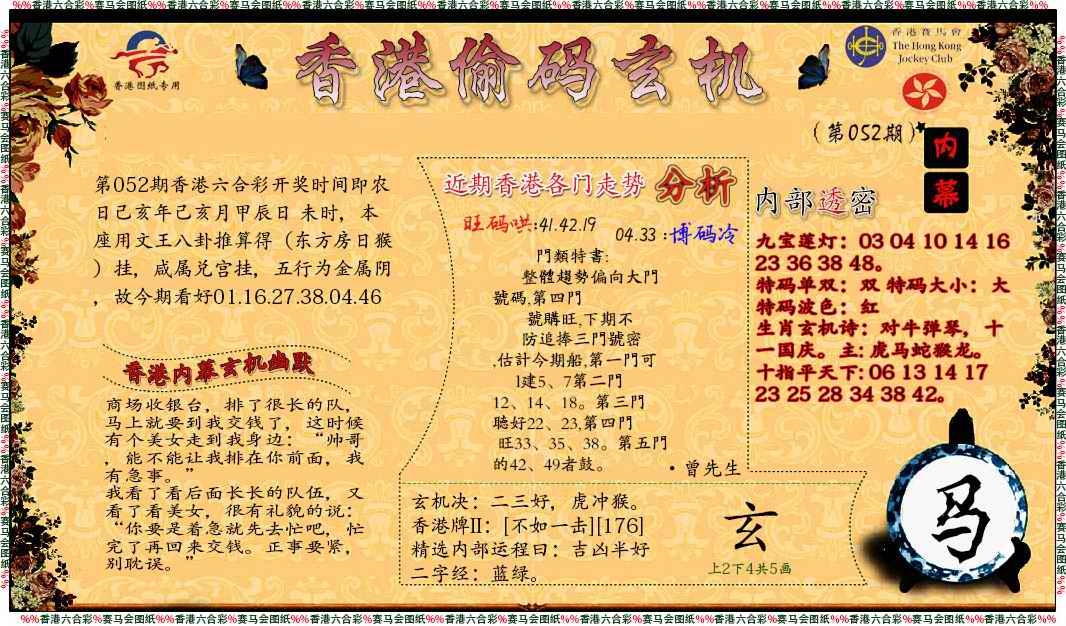 %%香港六合彩%赛马会图纸%%香港六合彩%赛马会图纸%%香港六合彩%赛马会图纸%%香港六合彩%赛马会图纸%%香港六合彩%赛马会图纸%%香港六合彩%赛马会图纸%%香港六合彩%%
香港图纸专用
香港偷码玄机
香港賽馬會
The Hong Kong
Jockey Club
(第052期)
内
幕
第052期香港六合彩开奖时间即农
日己亥年己亥月甲辰日 未时，本
座用文王八卦推算得（东方房日猴
）挂，咸属兑宫挂，五行为金属阴
，故今期看好01.16.27.38.04.46
香港内幕玄机幽默
商场收银台，排了很长的队，
马上就要到我交钱了，这时候
有个美女走到我身边：“帅哥
，能不能让我排在你前面，我
有急事。”
我看了看后面长长的队伍，又
看了看美女，很有礼貌的说：
“你要是着急就先去忙吧，忙
完了再回来交钱。正事要紧，
别耽误。”
近期香港各门走势 分析
旺码哄:41.42.19
04.33 :博码冷
門類特書:
整體趨勢偏向大門
號碼,第四門
號購旺,下期不
防追捧三門號密
,估計今期船,第一門可
1建5、7第二門
12、14、18。第三門
聽好22、23,第四門
旺33、35、38。第五門
的42、49者鼓。
·曾先生
玄机决：二三好，虎冲猴。
香港牌II：[不如一击][176]
精选内部运程曰：吉凶半好
二字经：蓝绿。
玄
上2下4共5画
内部透密
九宝莲灯：03 04 10 14 16
23 36 38 48。
特码单双：双 特码大小：大
特码波色：红
生肖玄机诗：对牛弹琴，十
一国庆。主:虎马蛇猴龙。
十指平天下:06 13 14 17
23 25 28 34 38 42。
马
%%香港六合彩%赛马会图纸%%香港六合彩%赛马会图纸%%香港六合彩%赛马会图纸%%香港六合彩%赛马会图纸%%香港六合彩%赛马会图纸%%香港六合彩%赛马会图纸%%香港六合彩%%